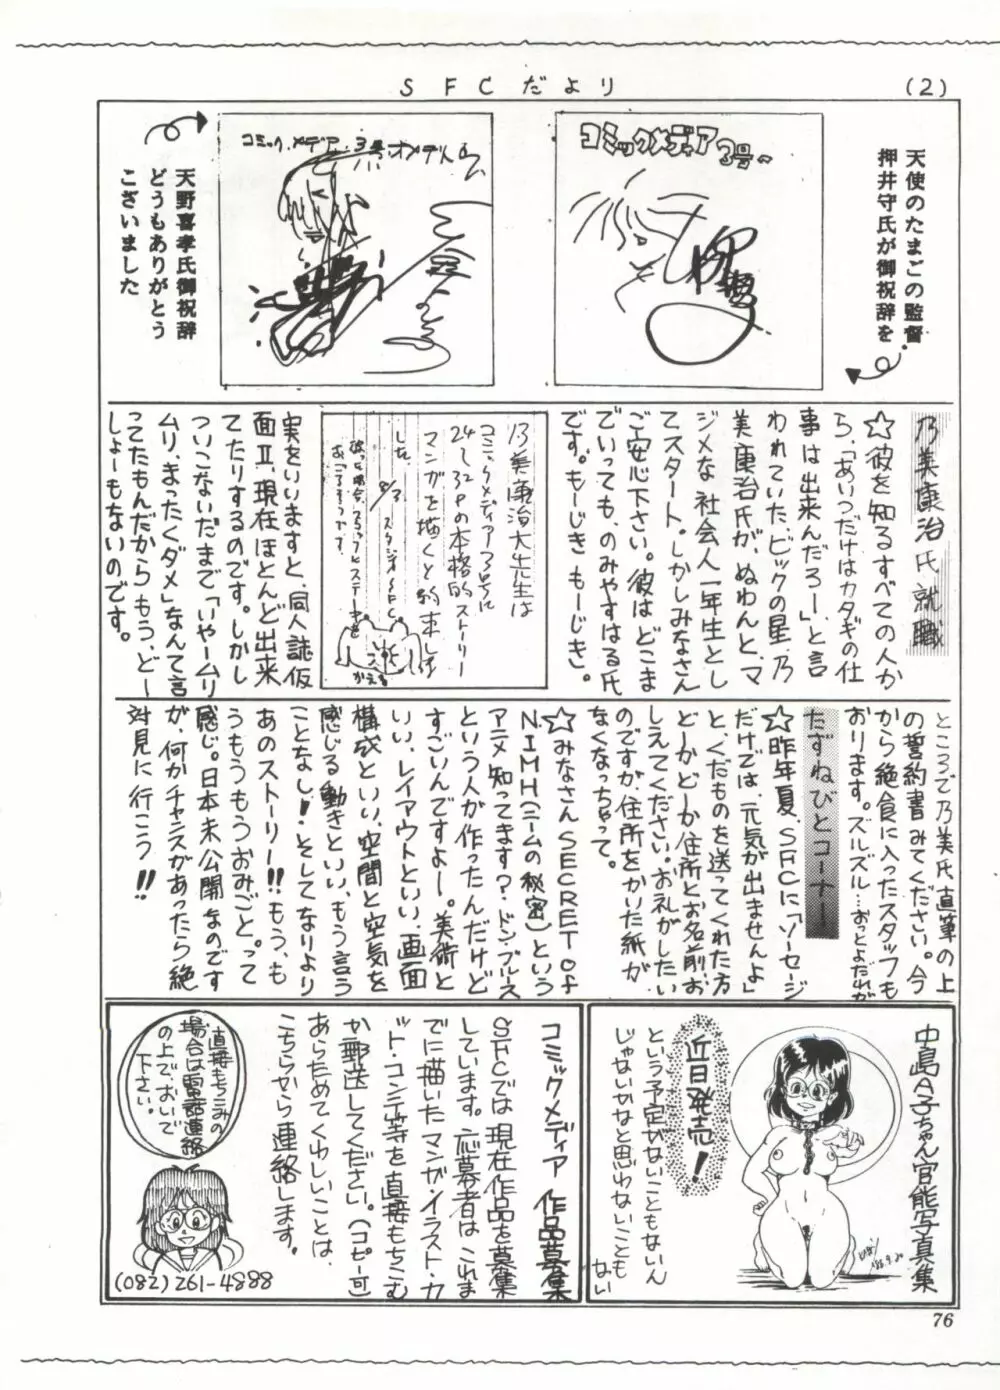 SFCだより
(2)
天使のたまごの監督、
押井守氏が御祝辞を
コミックメディア3号〜
コミック・メデア・3号・オメデトウ
天野喜孝氏御祝辞
どうもありがとう
ございました
乃美康治氏就職
☆彼を知るすべての人か
ら、「あいつだけはカタギの仕
事は出来んだろー」、と言
われていた、ビックの星、乃
美康治氏が、ぬわんと、マ
ジメな社会人一年生とし
てスタート。しかしみなさん
ご安心下さい。彼はどこま
でいっても、のみやすはる氏
です。もーじき もーじき。
乃美康治大先生は
コミックメディア3号に
24〜32Pの本格的ストーリー
マンガを描くと約束し
した。
8/3 スタジオSFC
かえる
実をいいますと、同人誌仮
面Ⅱ、現在ほとんど出来
てたりするのです。しかし
ついこないだまで「いやームリ
ムリ、まったくダメ」なんて言
ってたもんだからもう、どー
しょーもないのです。
ところで乃美氏直筆の上
の誓約書みてください。今
から絶食に入ったスタッフも
おります。ズルズル…おっとよだれが
たずねびとコーナー
☆昨年夏、SFCに「ソーセージ
だけでは、元気が出ませんよ」
と、くだものを送ってくれた方
どーかどーか住所とお名前、お
しえてください。お礼がしたい
のですが、住所をかいた紙が
なくなっちゃって。
☆みなさんSECRET of
N.I.M.H(ニームの秘密)という
アニメ知ってます?ドン・ブルース
という人が作ったんだけど
すごいんですよー。美術と
いい、レイアウトといい、画面
構成といい、空間と空気を
感じる動きといい、もう言う
ことなし!そしてなりより
あのストーリー!!もう、も
うもうもうおみごと。って
感じ。日本未公開なのです
が、何かチャンスがあったら絶
対見に行こう!!
中島A子ちゃん官能写真集
'86.9.20
近日発売!
という予定がないこともないん
じゃないかなと思わないことも
ない
コミックメディア 作品募集
SFCでは現在作品を募集
しています。応募者はこれま
でに描いたマンガ・イラスト・カ
ット・コンテ等を直接もちこむ
か郵送してください。(コピー可)
あらためてくわしいことは、
こちらから連絡します。
直接もちこみの
場合は電話連絡
の上で、おいで
下さい。
(082)261-4888
76